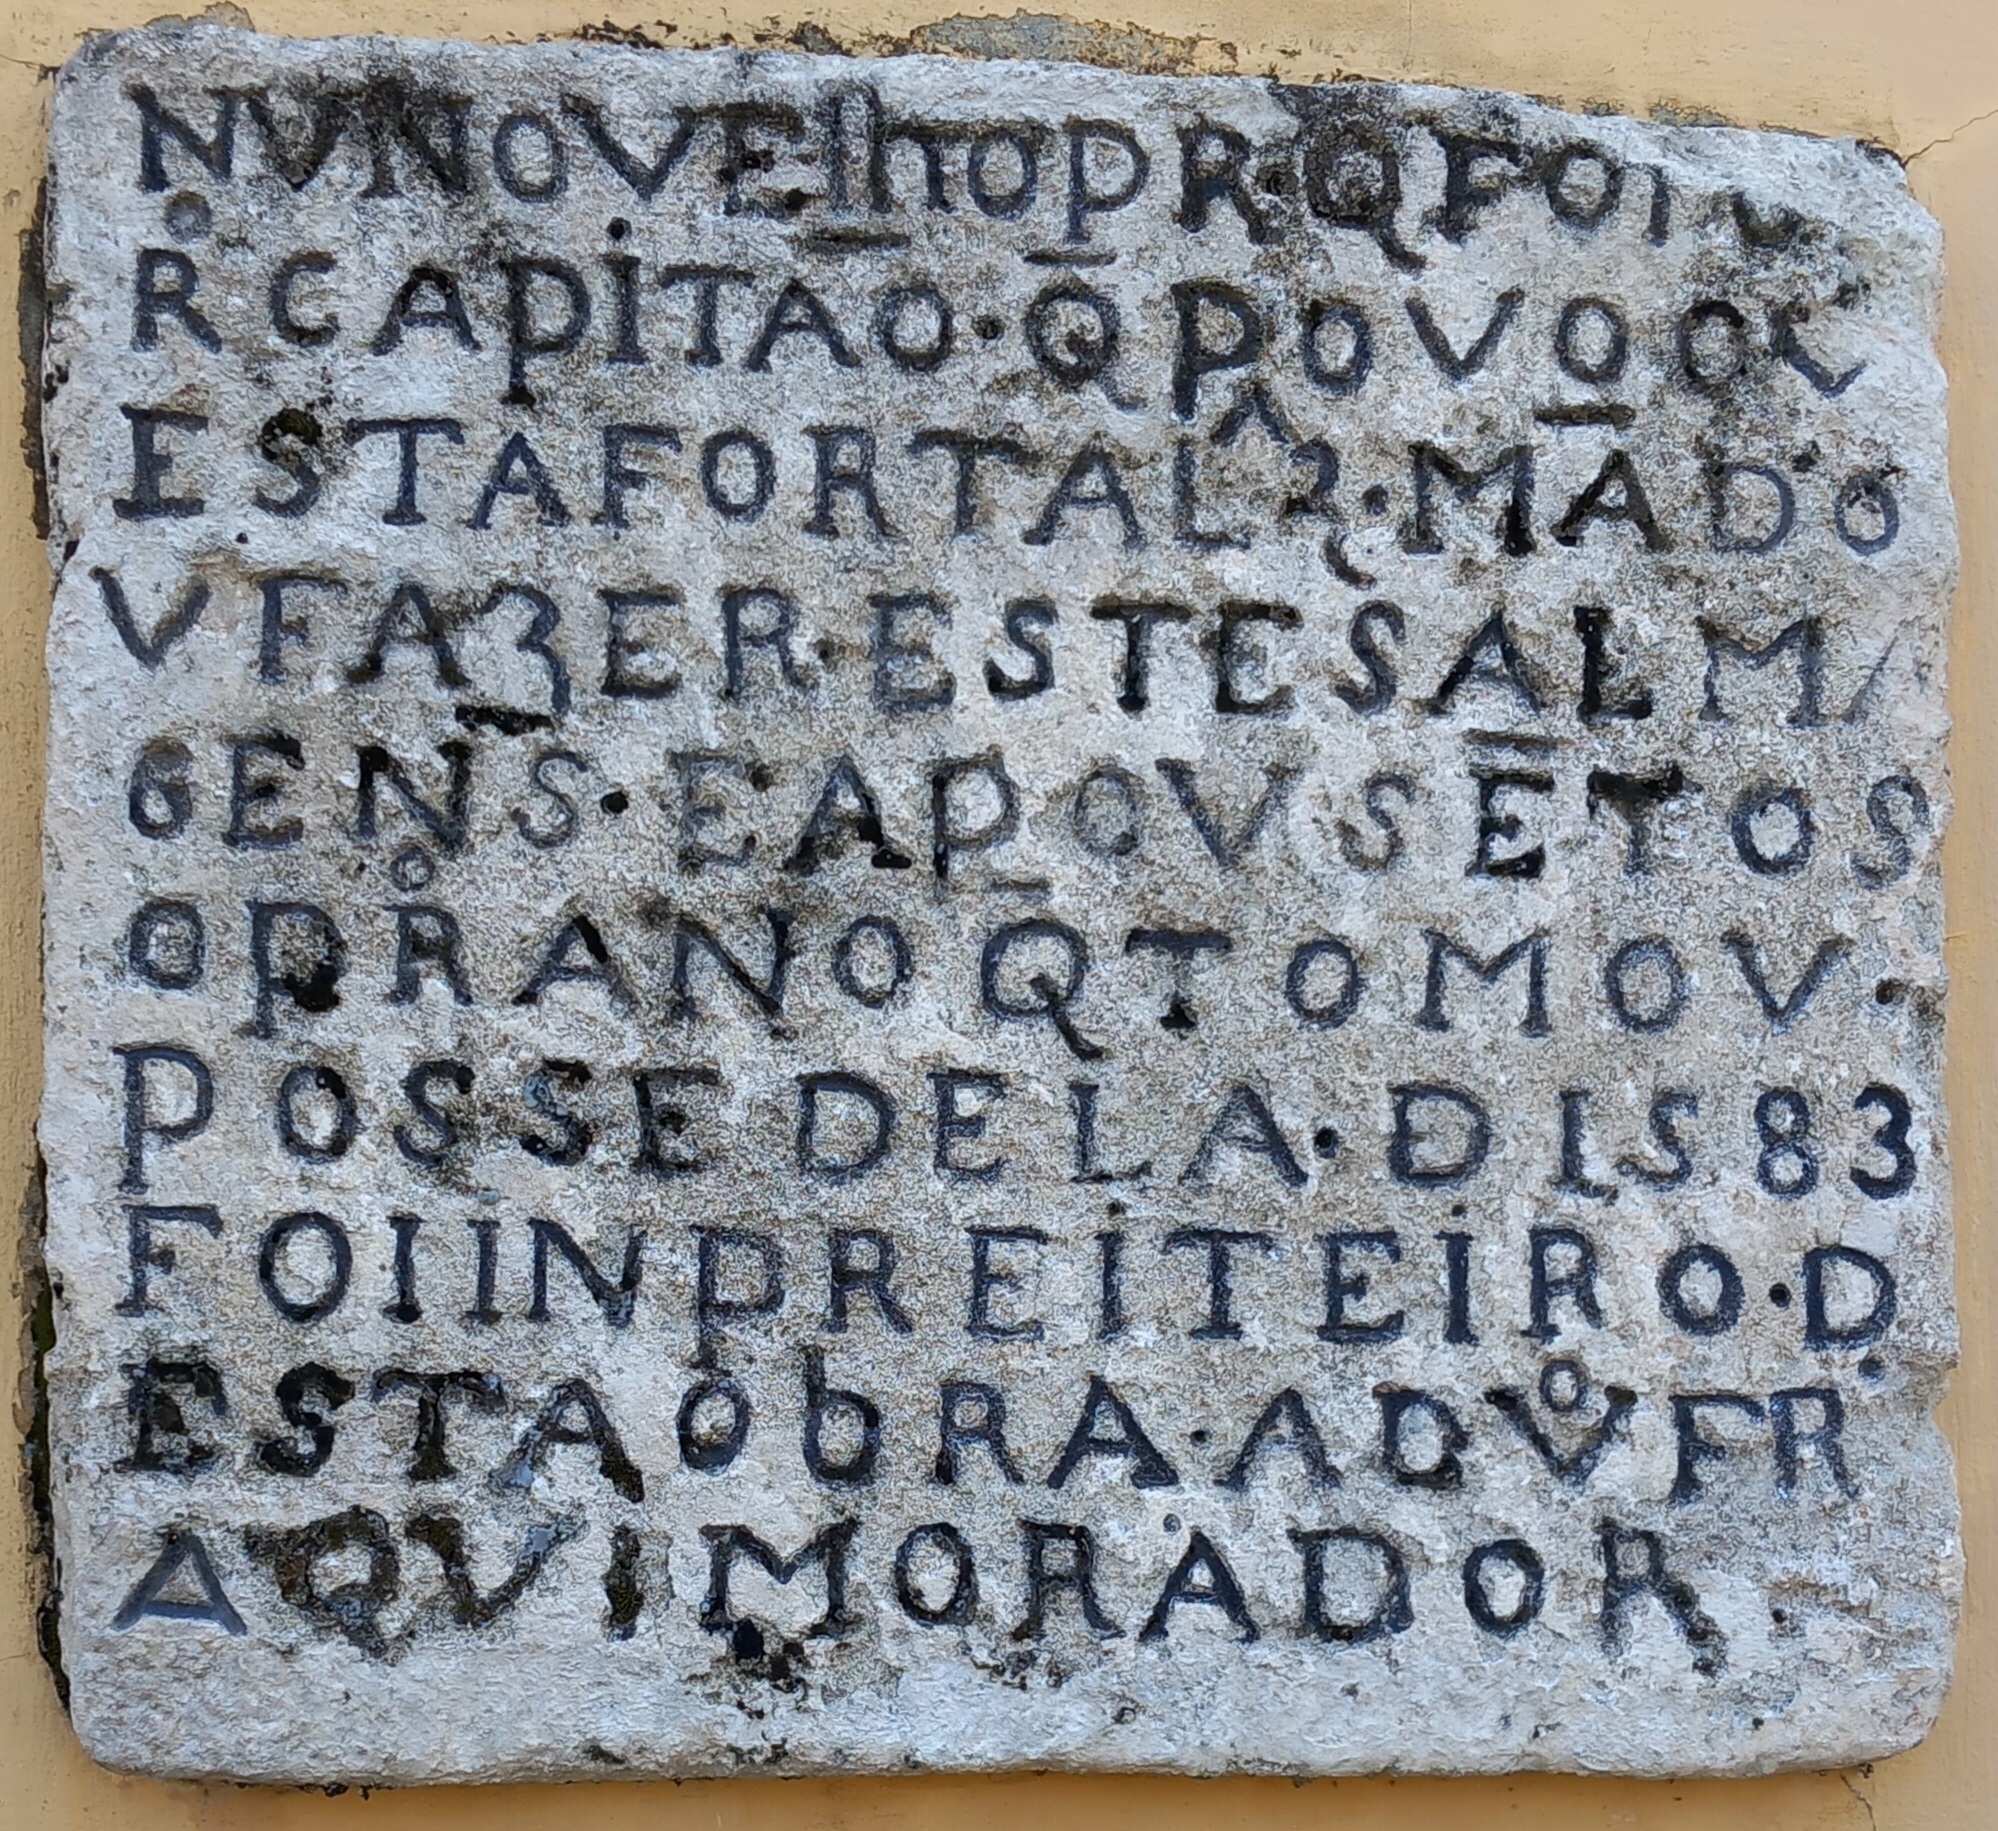 NUNO VElho PR Q FOI
Rº CAPITAO · Q POVOO
ESTA FORTALEZ · MADO
V FAZER · ESTES ALMA
GENS · E APOVSETOS
O PRº ANO Q TOMOV ·
POSSE DELA · D 1583
FOI INPREITEIRO · D
ESTA ObRA · ADVº FR
AQVI MORADOR